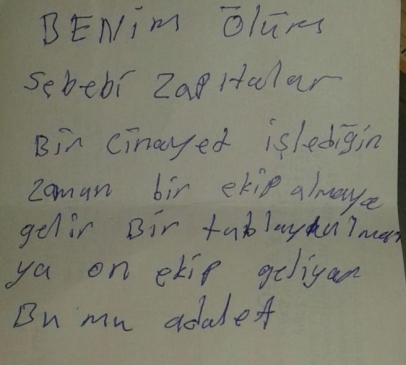 BENİM ÖLÜM
Sebebi Zabıtalar
Bir Cinayet işlediğin
Zaman bir ekip almaya
gelir Bir tablay
ya on ekip geliyar
Bu mu adalet